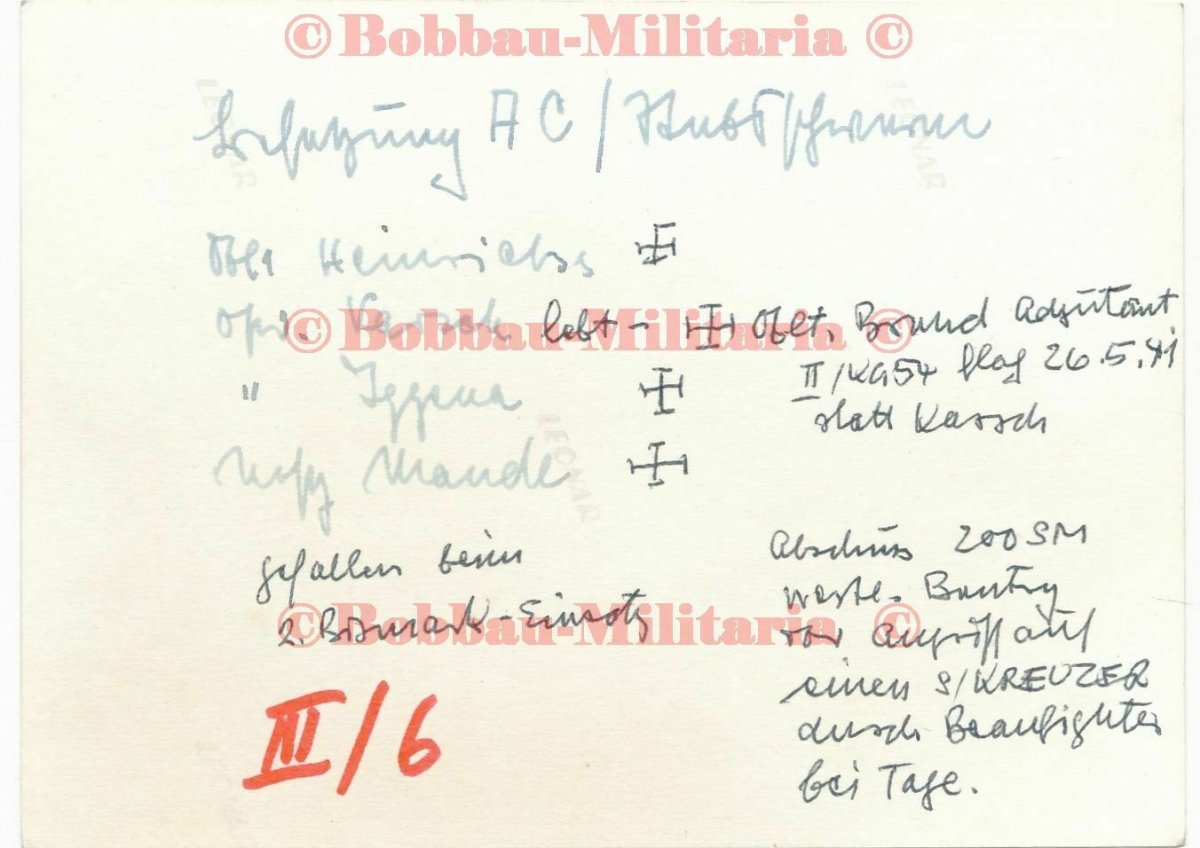 © Bobbau-Militaria ©
Besatzung AC/Stabsschwarm
LEONAR
LEONAR
Oblt Heinrichs
© Bobbau-Militaria ©
Kassch lebt - Oblt. Brand Adjutant
" Iggena II/KG54 flog 26.5.41
statt Kassch
LEONAR
Maude
gefallen beim
2. Bismark-Einsatz
© Bobbau-Militaria ©
Abschuss 200 SM
westl. Bantry
vor Angriff auf
einen S/KREUZER
durch Beaufighter
bei Tage.
III/6